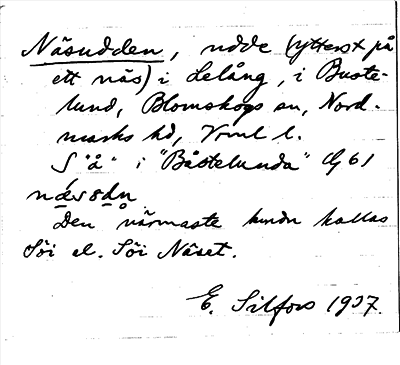 Näsudden, udde (ytterst på
ett näs) i Lelång, i Buste-
lund, Blomskogs sn, Nord-
marks hd, Vrml l.
S "å" i "Båstelunda" G 61
Den närmaste kallas
Söi el. Söi Näset.
E. Silfors 1937.